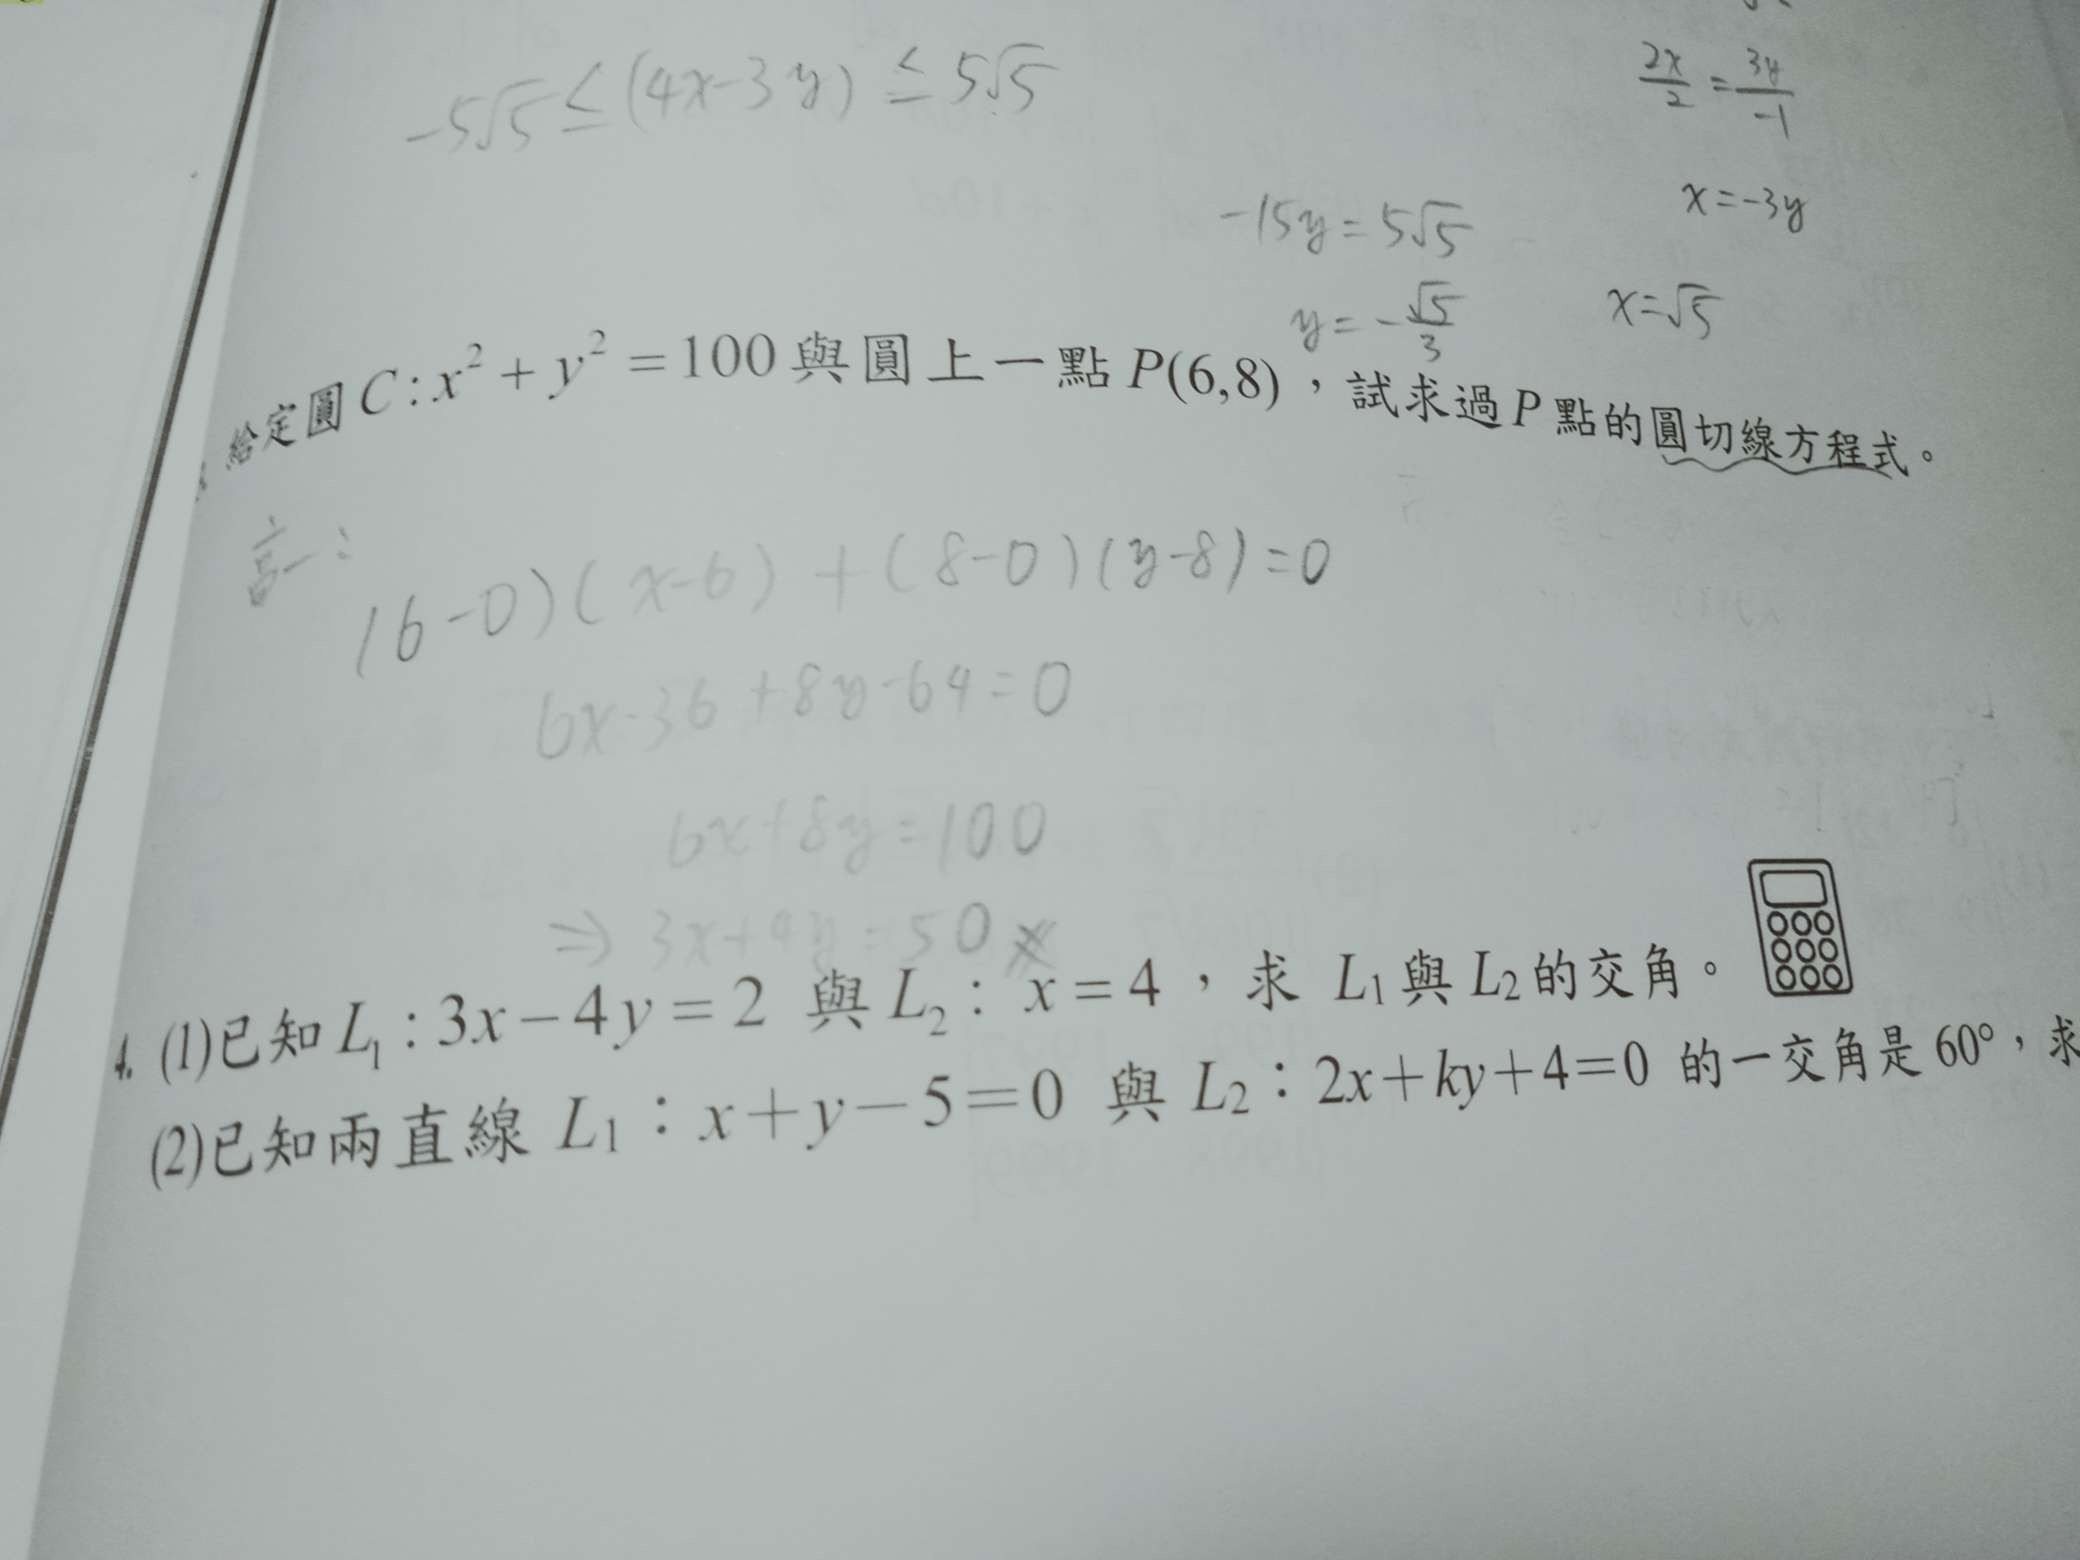 -5√5 ≤ (4x-3y) ≤ 5√5
2x/2 = 3y/-1
x=-3y
-15y=5√5
y=-√5/3
x=√5
給定圓 C : x² + y² = 100 與圓上一點 P(6,8)，試求過 P 點的圓切線方程式。
高一：
(6-0)(x-6)+(8-0)(y-8)=0
6x-36+8y-64=0
6x+8y=100
⇒ 3x+4y=50
4. (1)已知 L₁ : 3x－4y＝2 與 L₂ : x＝4，求 L₁ 與 L₂ 的交角。
(2)已知兩直線 L₁：x＋y－5＝0 與 L₂：2x＋ky＋4＝0 的一交角是 60°，求